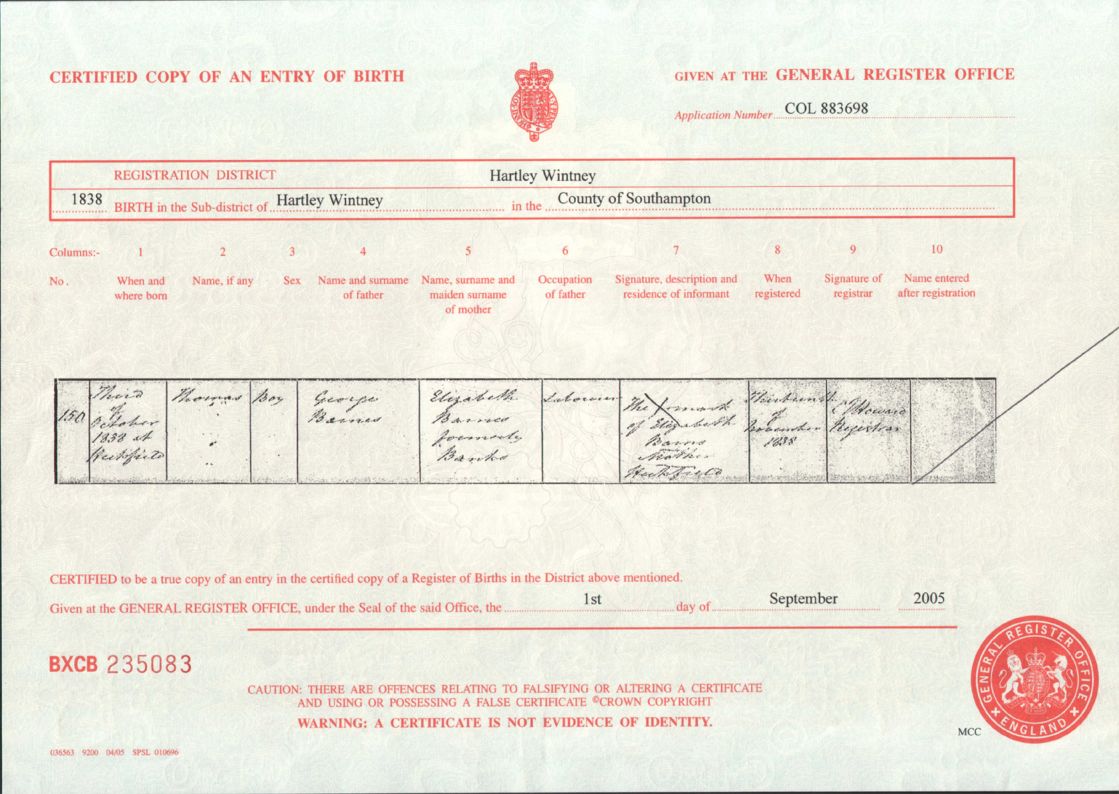 CERTIFIED COPY OF AN ENTRY OF BIRTH
GIVEN AT THE GENERAL REGISTER OFFICE
Application Number COL 883698
REGISTRATION DISTRICT Hartley Wintney
1838 BIRTH in the Sub-district of Hartley Wintney in the County of Southampton
Columns:- 1 2 3 4 5 6 7 8 9 10
No. When and where born Name, if any Sex Name and surname of father Name, surname and maiden surname of mother Occupation of father Signature, description and residence of informant When registered Signature of registrar Name entered after registration
150
Third
of
October
1838 at
Heckfield
Thomas
Boy
George
Barnes
Elizabeth
Barnes
formerly
Banks
Labourer
The X mark
of Elizabeth
Barns
Mother
Heckfield
of
November
1838
Howard
Registrar
CERTIFIED to be a true copy of an entry in the certified copy of a Register of Births in the District above mentioned.
Given at the GENERAL REGISTER OFFICE, under the Seal of the said Office, the 1st day of September 2005
BXCB 235083
CAUTION: THERE ARE OFFENCES RELATING TO FALSIFYING OR ALTERING A CERTIFICATE
AND USING OR POSSESSING A FALSE CERTIFICATE ©CROWN COPYRIGHT
WARNING: A CERTIFICATE IS NOT EVIDENCE OF IDENTITY.
GENERAL REGISTER OFFICE
ENGLAND
MCC
036563 9200 04/05 SPSL 010696